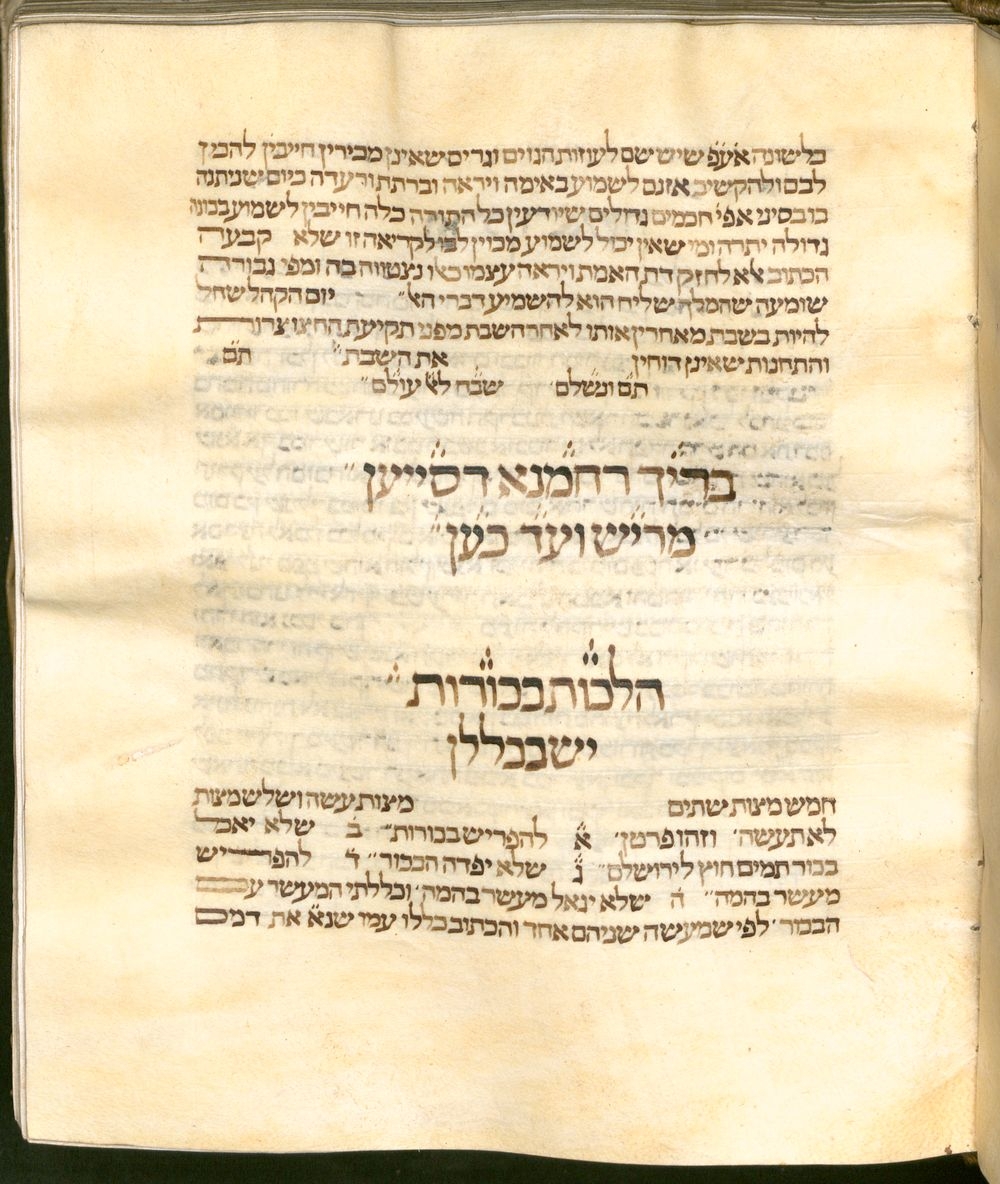 כל ישונה אע״פ שיש שם לעוזות הגוים וגרים שאינן מכירין חייבין להכין
לבם ולהקשיב אזנם לשמוע באימה ויראה וברתת ורעדה כיום שניתנה
בו בסיני אפי׳ חכמים גדולים שיודעין כל התורה כלה חייבין לשמוע בכונה
גדולה יתרה ומי שאין יכול לשמוע מכוין לבו לקריאה זו שלא קבעה
הכתוב אלא לחזק דת האמת ויראה עצמו כאלו נצטווה בה ומפי גבורה
שומעה שהמלך שליח הוא להשמיע דברי הא״ יום הקהל שחל
להיות בשבת מאחרין אותו לאחר השבת מפני תקיעת החצוצרות
והתחנות שאינן דוחין את השבת״ תם
תם ונשלם׳ שבח לאל עולם״
בריך רחמנא דסייען״
מריש ועד כען״
הלכות בכורות״
יש בכללן
חמש מצות שתים מצות עשה ושלש מצות
לא תעשה׳ וזהו פרטן׳ א להפריש בכורות״ ב שלא יאכל
בכור תמים חוץ לירושלם״ ג שלא יפדה הבכור״ ד להפריש
מעשר בהמה״ ה שלא יגאל מעשר בהמה׳ וכללתי המעשר עם
הבכור׳ לפי שמעשה שניהם אחד והכתוב כללו עמו שנא׳ את דמם